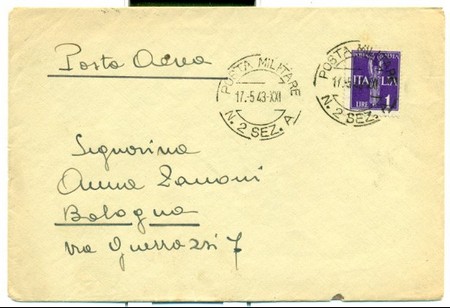 Posta Aerea
POSTA MILITARE
17.5.43-XXI
N. 2 SEZ. A
POSTA MILITARE
17.5.43
N. 2 SEZ. A
ITALIA
LIRE 1
Signorina
Anna Zanoni
Bologna
via Guerrazzi 7